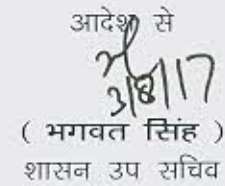 आदेश से
3/8/17
( भगवत सिंह )
शासन उप सचिव